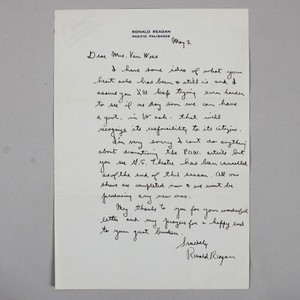 RONALD REAGAN
PACIFIC PALISADES
May 2
Dear Mrs. Van Wees
I have some idea of what your
heart ache has been & still is and I
assure you I'll keep trying even harder
to see if we day soon we can have
a govt. in Wash. that will
recognize its responsibility to its citizens.
I'm very sorry I can't do anything
about dramatizing the P.O.W. article but
you see G.E. Theatre has been cancelled
as of the end of this season. All our
shows are completed now & we wont be
producing any new ones.
My thanks to you for your wonderful
letter and my prayers for a happy end
to your great burden.
Sincerely
Ronald Reagan